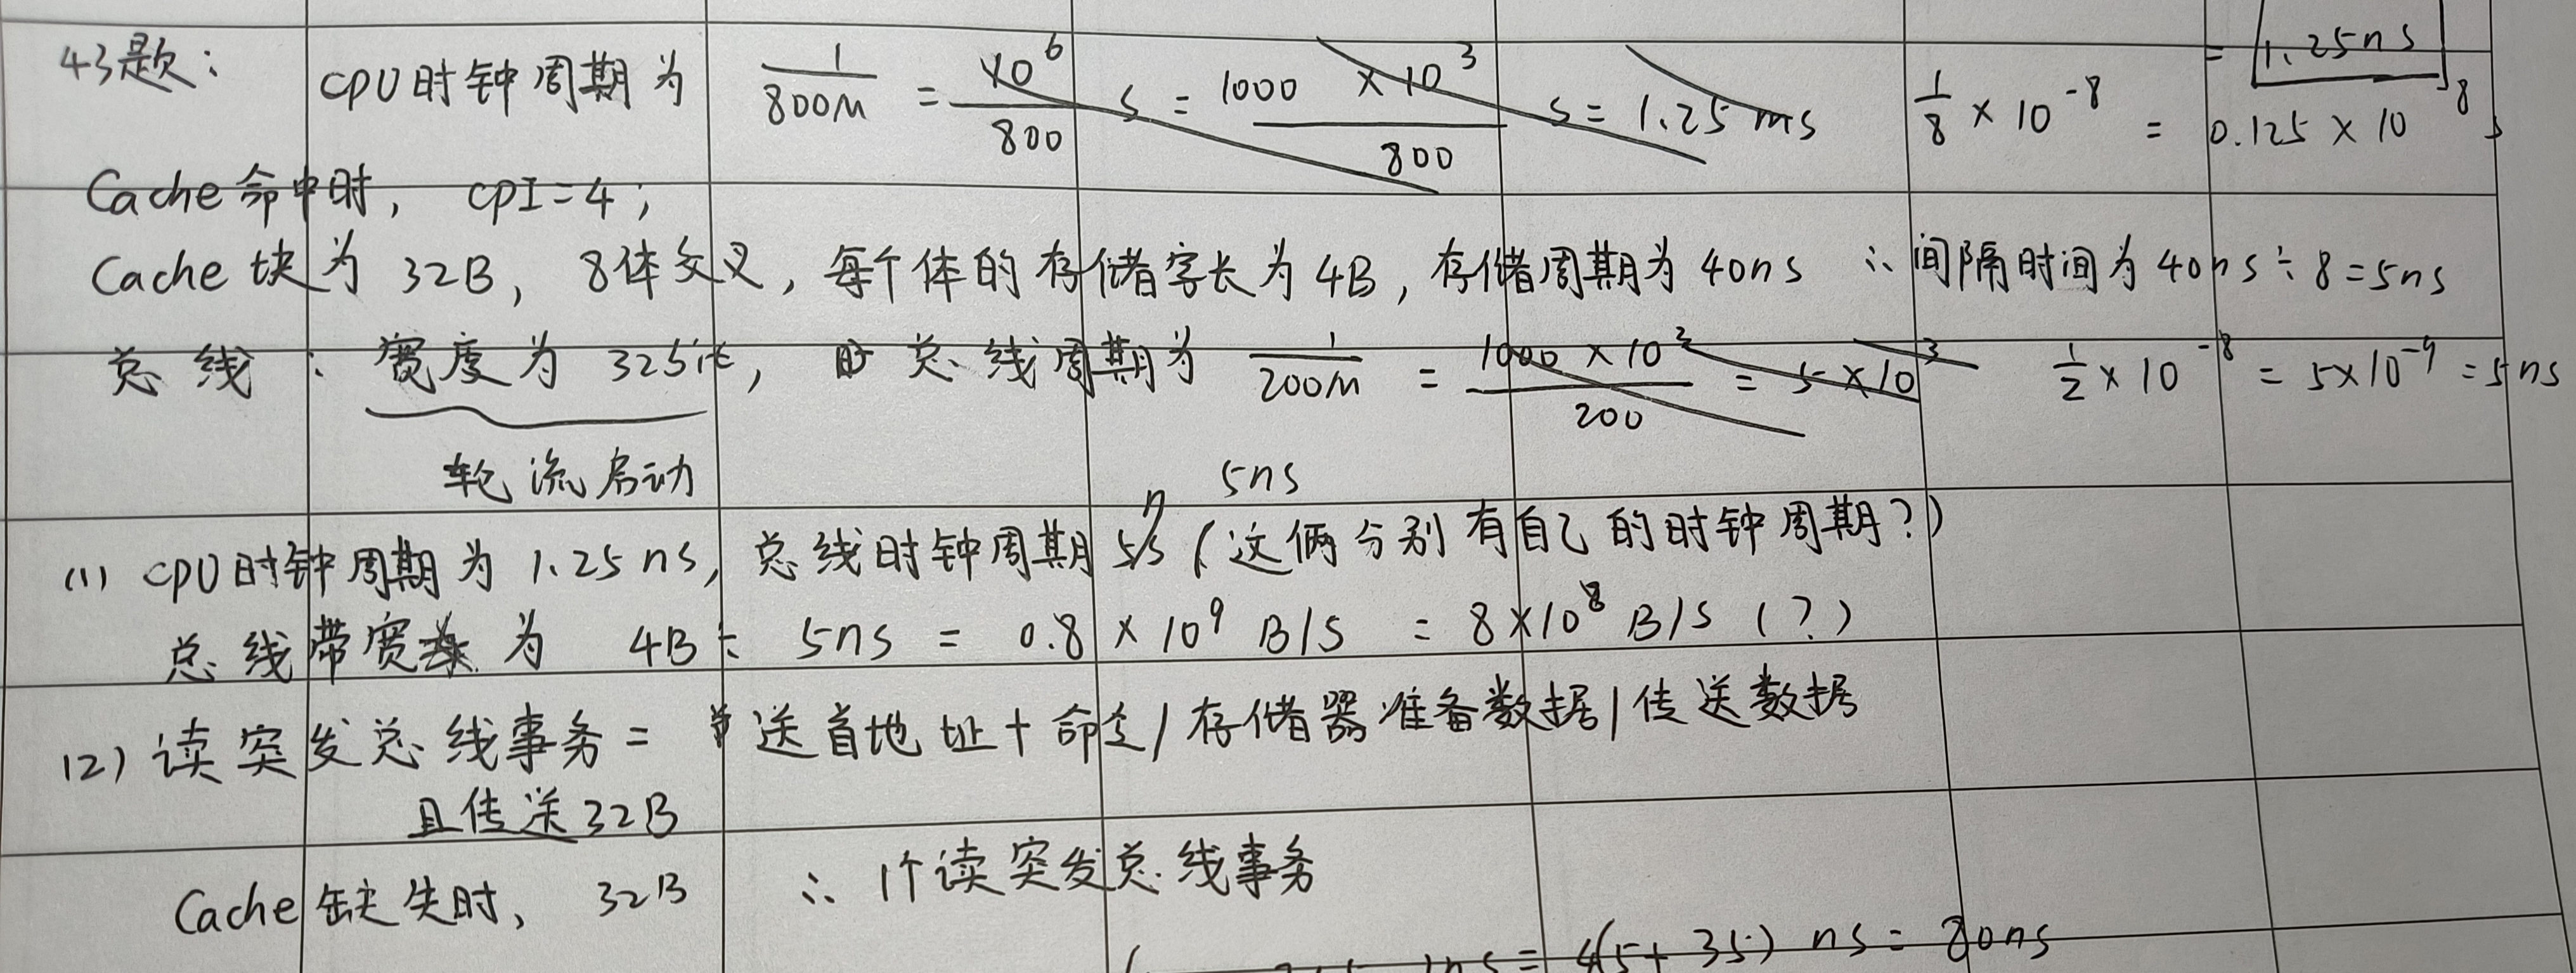 43题: CPU时钟周期为 1/800M = 10^6/800 s = 1000 × 10^3/800 s = 1.25 ms 1/8 × 10^-8 = 0.125 × 10^-8 s = 1.25ns
Cache命中时, CPI=4;
Cache块为 32B, 8体交叉, 每个体的存储字长为4B, 存储周期为40ns ∴间隔时间为40ns÷8=5ns
总线: 宽度为 32bit, 总线周期为 1/200M = 1000 × 10^3/200 = 5×10^3 1/2 × 10^-8 = 5×10^-9 = 5ns
轮流启动 5ns
(1) CPU时钟周期为 1.25ns, 总线时钟周期5ns (这俩分别有自己的时钟周期?)
总线带宽为 4B÷5ns = 0.8 × 10^9 B/S = 8×10^8 B/S (?)
(2) 读突发总线事务 = 送首地址+命令/存储器准备数据/传送数据
且传送32B
Cache缺失时, 32B ∴ 1个读突发总线事务
ns = (5+35) ns = 80ns